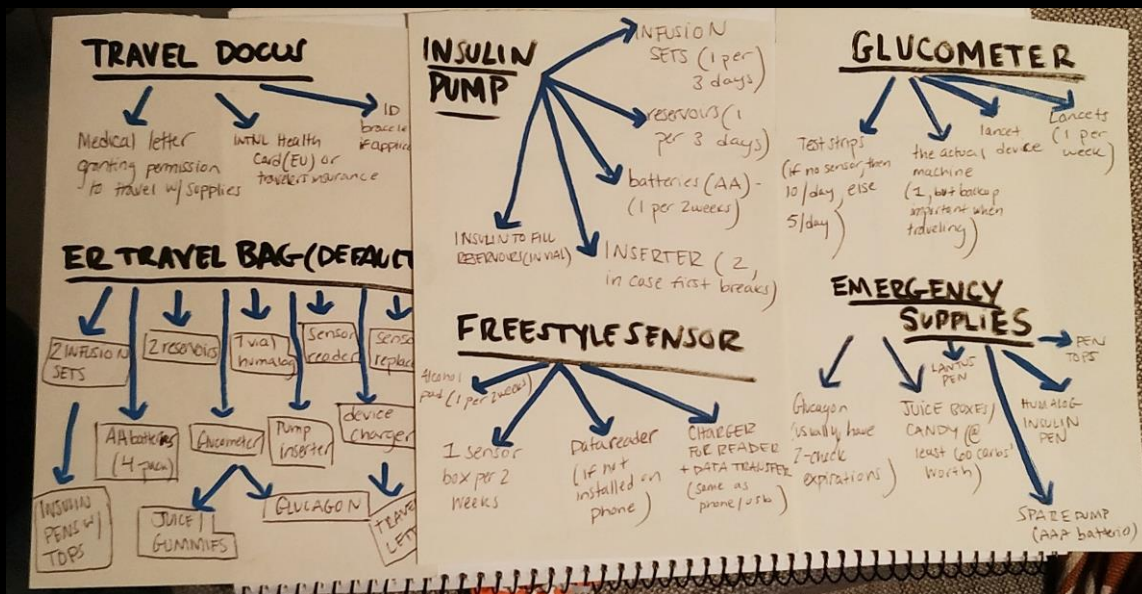 TRAVEL DOCUS
Medical letter
granting permission
to travel w/ supplies
INTNL Health
Card (EU) or
travelers insurance
ID
bracele
if applica
ER TRAVEL BAG (DEFAULT
2 INFUSION
SETS
2 reservoirs
1 vial
humalog
sensor
reader
senso
replac
AA batteries
(4-pack)
Glucometer
Pump
inserter
device
charger
INSULIN
PENS w/
TOPS
JUICE/
GUMMIES
GLUCAGON
TRAVEL
LETT
INSULIN
PUMP
INFUSION
SETS (1 per
3 days)
reservoirs (1
per 3 days)
batteries (AA) -
(1 per 2 weeks)
INSERTER (2,
in case first breaks)
INSULIN TO FILL
RESERVOIRS (IN VIAL)
FREESTYLE SENSOR
Alcohol
pad (1 per 2 weeks)
1 sensor
box per 2
weeks
Data reader
(if not
installed on
phone)
CHARGER
FOR READER
+ DATA TRANSFER
(same as
phone/usb)
GLUCOMETER
Test strips
(if no sensor, then
10/day, else
5/day)
the actual
machine
(1, but backup
important when
traveling)
lancet
device
Lancets
(1 per
week)
EMERGENCY
SUPPLIES
Glucagon
(usually have
2-check
expirations)
JUICE BOXES/
CANDY (@
least 60 carbs'
worth)
LANTUS
PEN
PEN
TOPS
HUMALOG
INSULIN
PEN
SPARE PUMP
(AAA batteries)